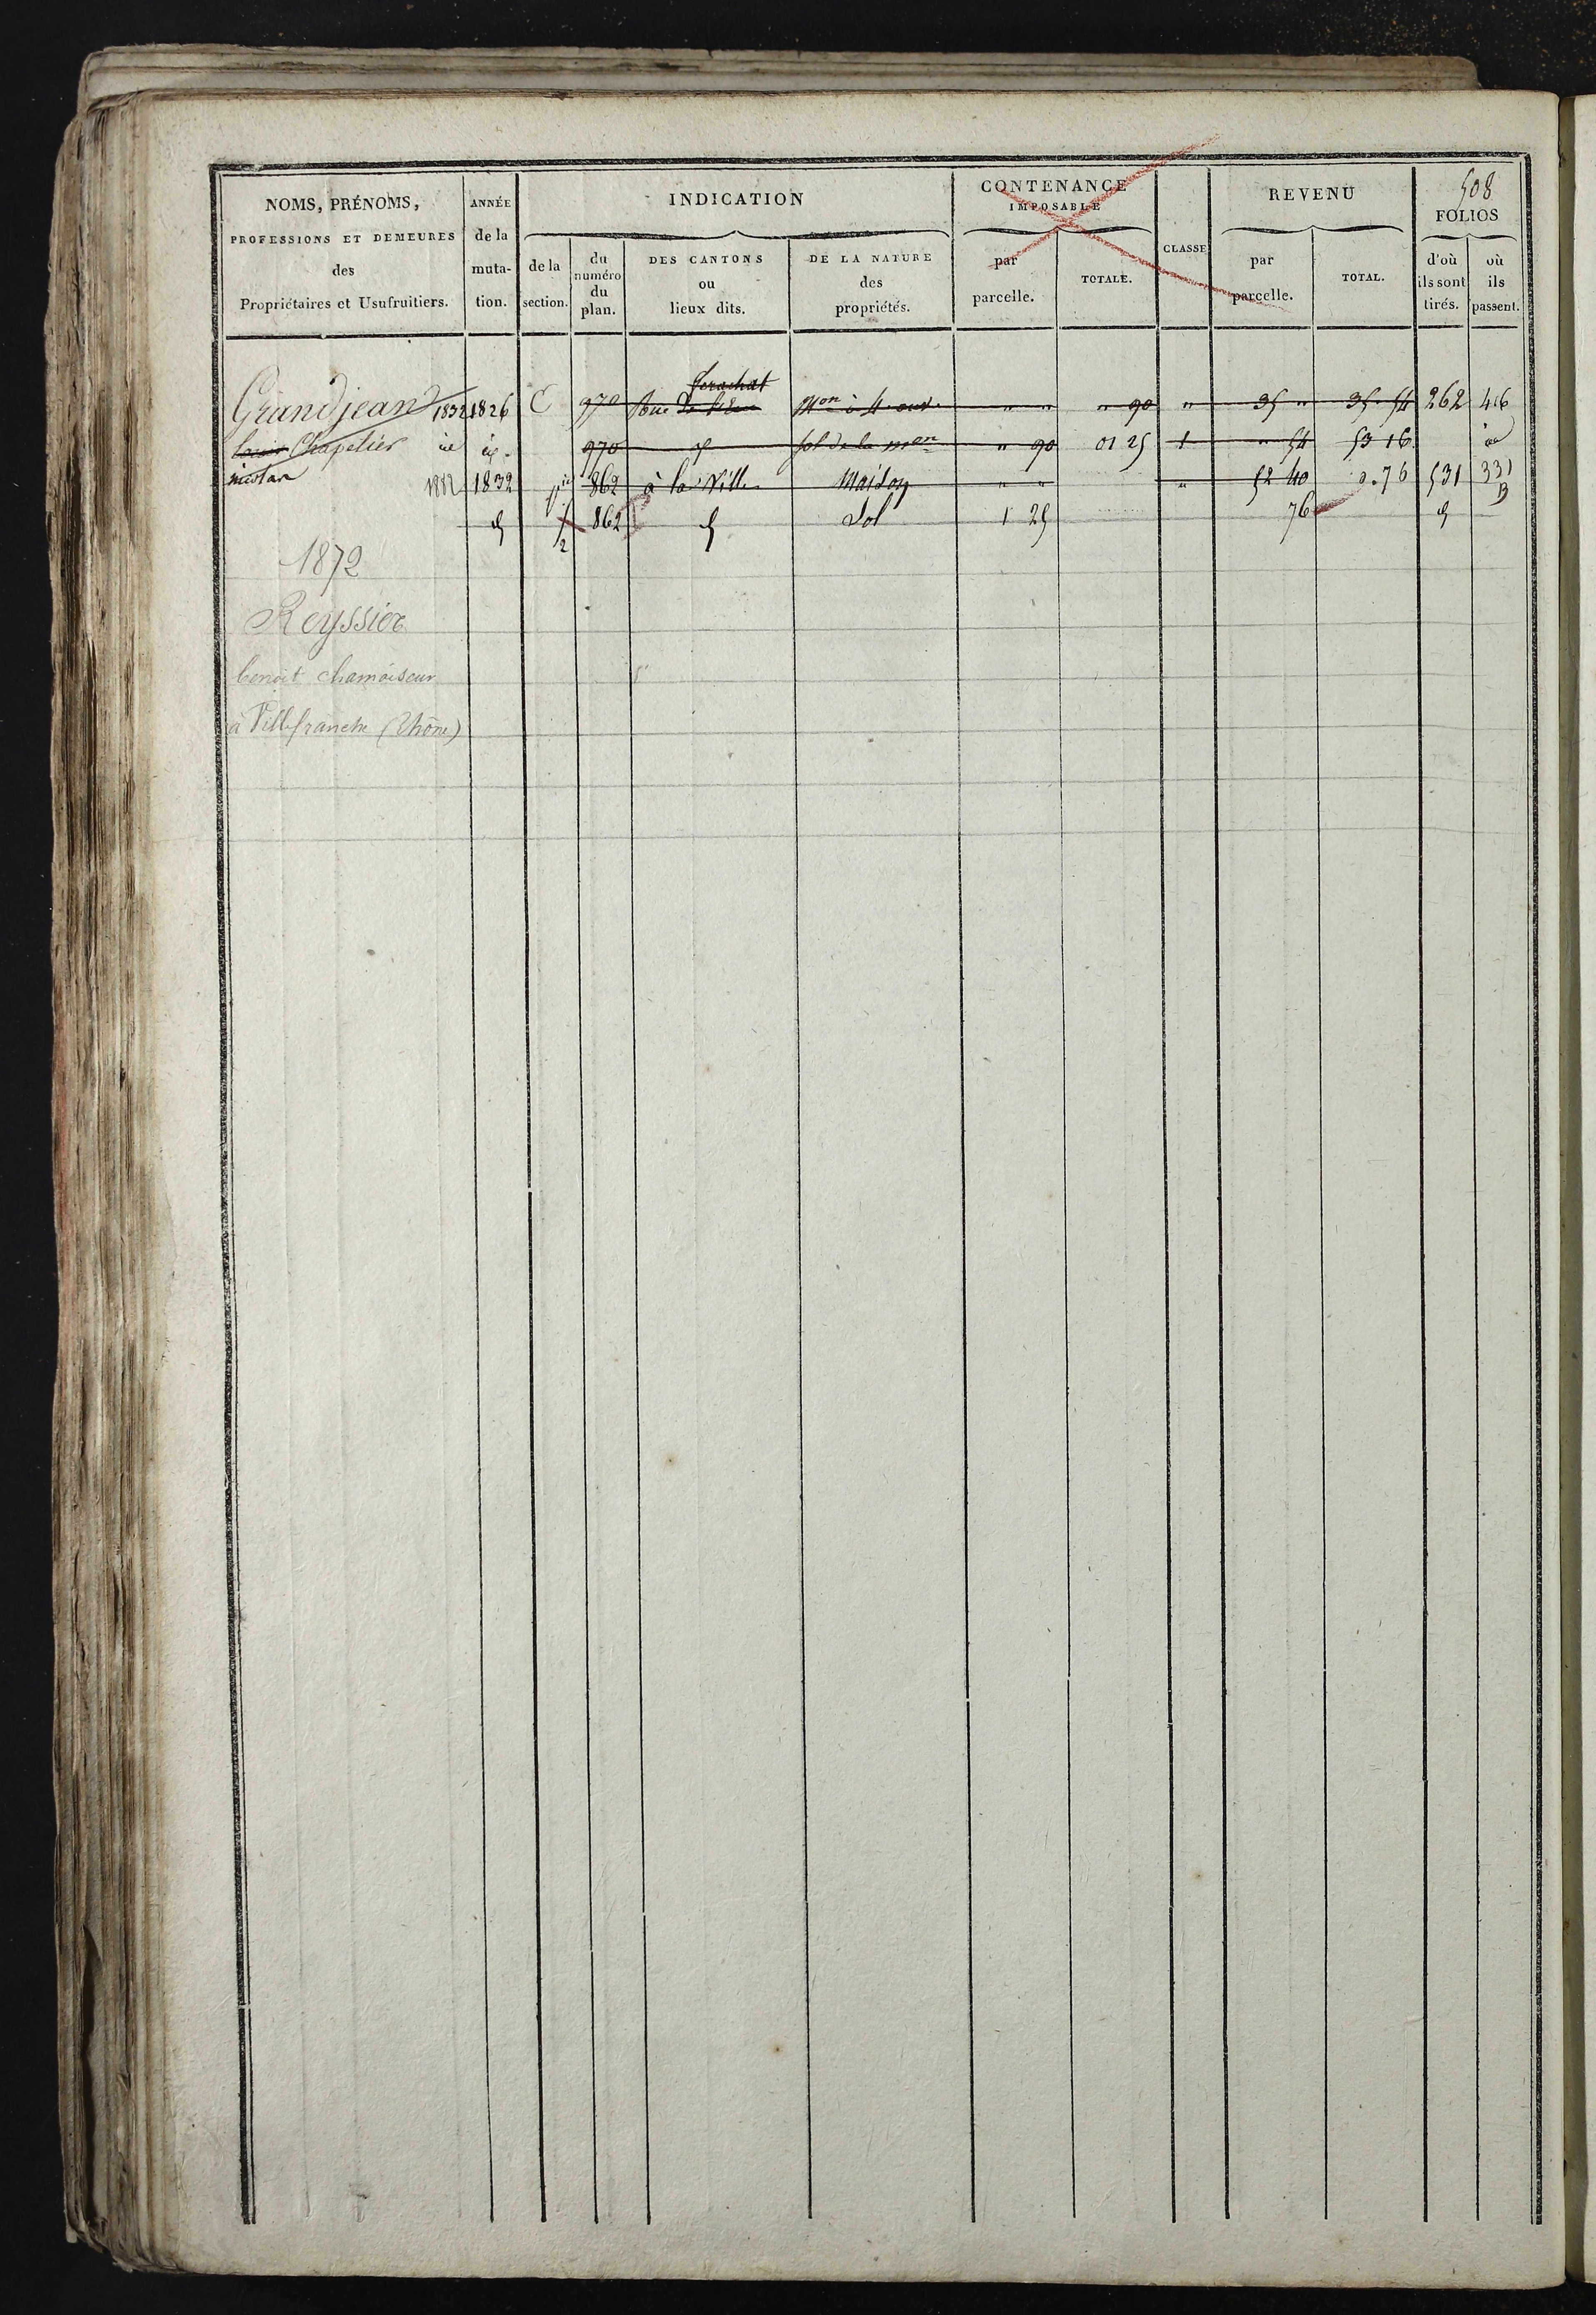 508
NOMS, PRÉNOMS, PROFESSIONS ET DEMEURES des Propriétaires et Usufruitiers.
ANNÉE de la muta- tion.
INDICATION
de la section.
du numéro du plan.
DES CANTONS ou lieux dits.
DE LA NATURE des propriétés.
CONTENANCE IMPOSABLE
par parcelle.
TOTALE.
CLASSE
REVENU
par parcelle.
TOTAL.
FOLIOS
d'où ils sont tirés.
où ils passent.
Grandjean 1832 1826 C 970 Rue " " " 90 " 35 " 35 54 262 416
Chapelier id id 970 sol de la mon " 90 01 25 1 " 54 53 16 id
nicolas 1882 1832 862 à la Ville Maison " " " 52 40 0.76 531 331 B
862 Sol 1 25 76
1872
Reyssier
benoit chamoiseur
à Villefranche (Rhône)